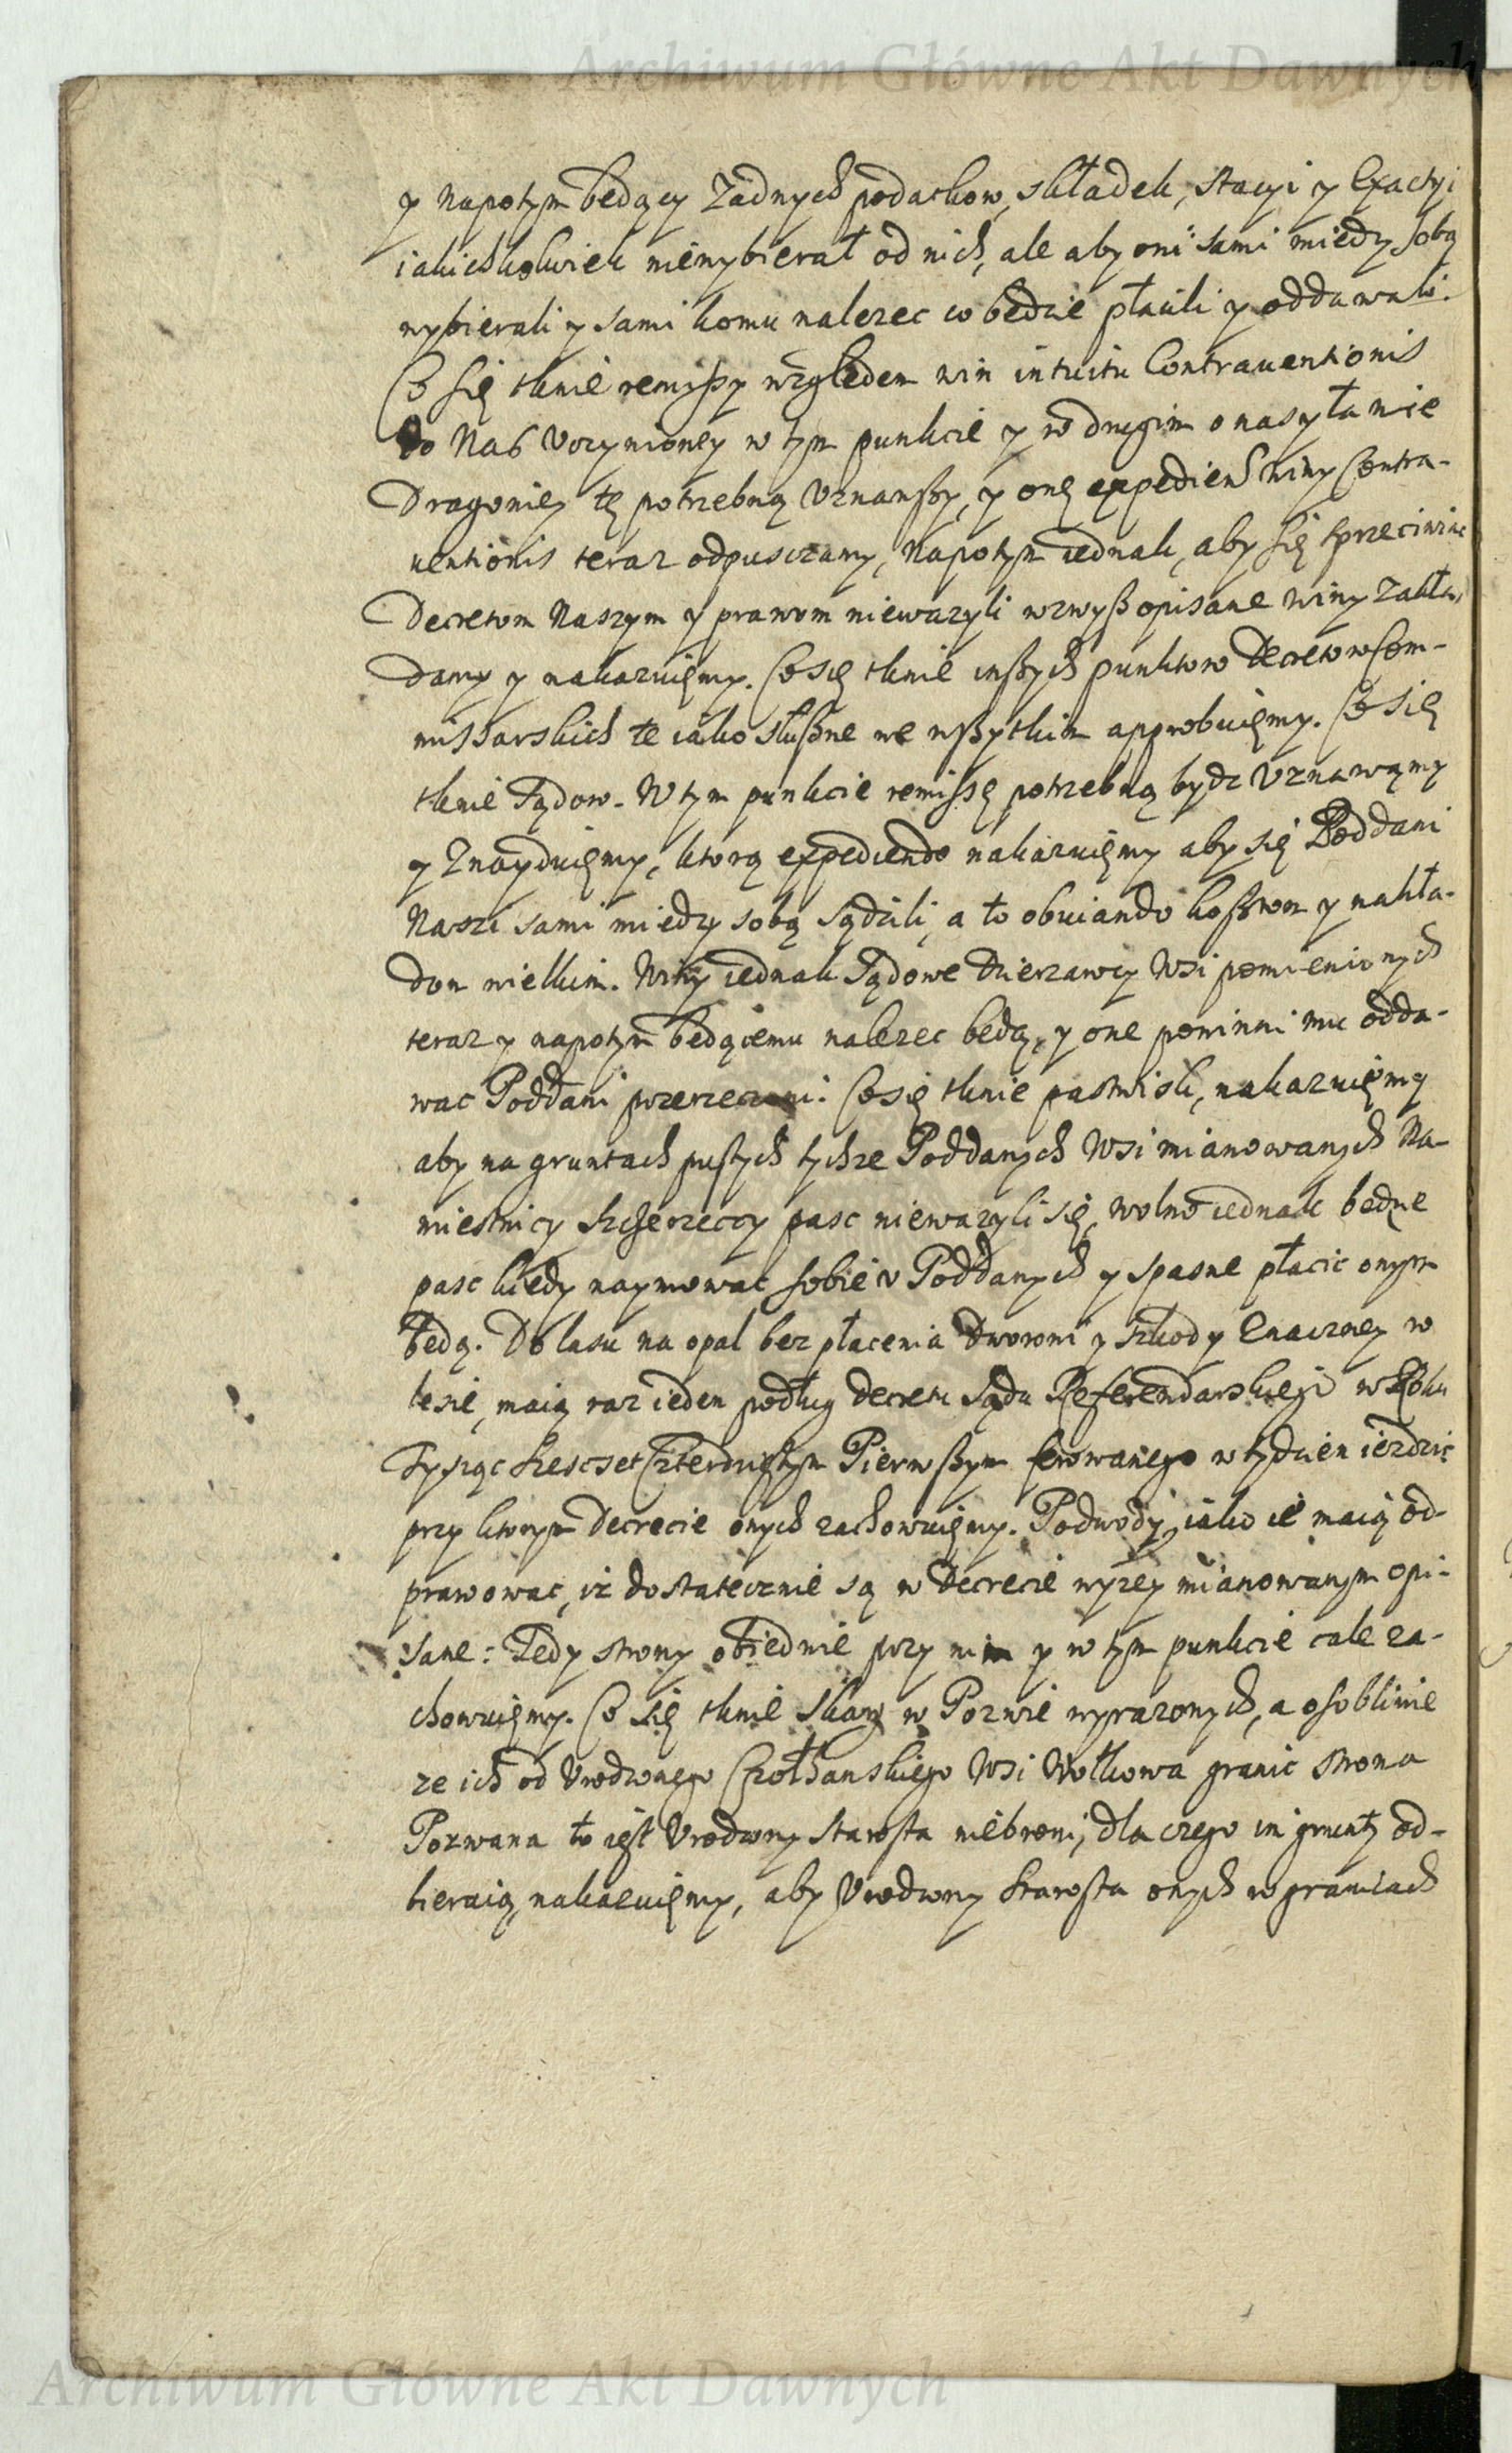 Archiwum Główne Akt Dawnych
y napotym bedący Zadnych podatkow, składek, stacyi y Exactyi
iakichkolwiek niewybierał od nich, ale aby oni sami miedzy sobą
wybierali y sami komu nalezec co bedzie płacili y oddawali.
Co się tknie remissy względem win intuitu Contrauentionis
do Nas Vczynioney w tym punkcie y w drugim o nasyłanie
Dragoniey tę potrzebną Vznawszy, y onę expediendo winy Contra-
uentionis teraz odpusczamy, napotym iednak, aby się sprzeciwiac
Decretom Naszym y prawom niewazyli wzwyß opisane winy zakła-
damy y nakazuięmy. Co się tknie inßych punktow Decretow Com-
missarskich te iako słußne we wßytkim approbuięmy. Co się
tknie Sądow. W tym punkcie remissę potrzebną bydz Vznawamy
y Znayduięmy, ktorą expediendo nakazuięmy aby się Poddani
Naszi sami miedzy sobą sądzili, a to obuiando koßtom y nakła-
dom wielkim. Winy iednak Sądowe Dzierzawcy Wsi pomienionych
teraz y napotym bedącemu nalezec bedą, y one powinni mu odda-
wac Poddani przerzeczeni. Co się tknie pastwisk, nakazuięmy
aby na gruntach pustych tychze Poddanych Wsi mianowanych Na-
miestnicy Szczerzeccy pasc niewazyli się, wolno iednak bedzie
pasc kiedy naymowac sobie v Poddanych y spasne płacic onym
bedą. Do lasu na opal bez płacenia Dworowi y szkody Znaczney w
lesie, maią raz ieden podług Decretu Sądu Referendarskiego w Roku
Tysiąc szescset Czterdziestym Pierwßym ferowanego w tydzien iezdzic
przy ktorym Decrecie onych zachowuięmy. Podwody, iako ie maią od-
prawowac, iz dostatecznie są w Decrecie wyzey mianowanym opi-
sane: Tedy strony obiedwie przy nim y w tym punkcie cale za-
chowuięmy. Co się tknie skarg w Pozwie wyrazonych, a osobliwie
ze ich od Vrodzonego Czołhanskiego Wsi Wołkowa granic strona
Pozwana to iest Vrodzony Starosta niebroni, dla czego im grunty od-
bieraią, nakazuięmy, aby Vrodzony Starosta onych w granicach
Archiwum Główne Akt Dawnych